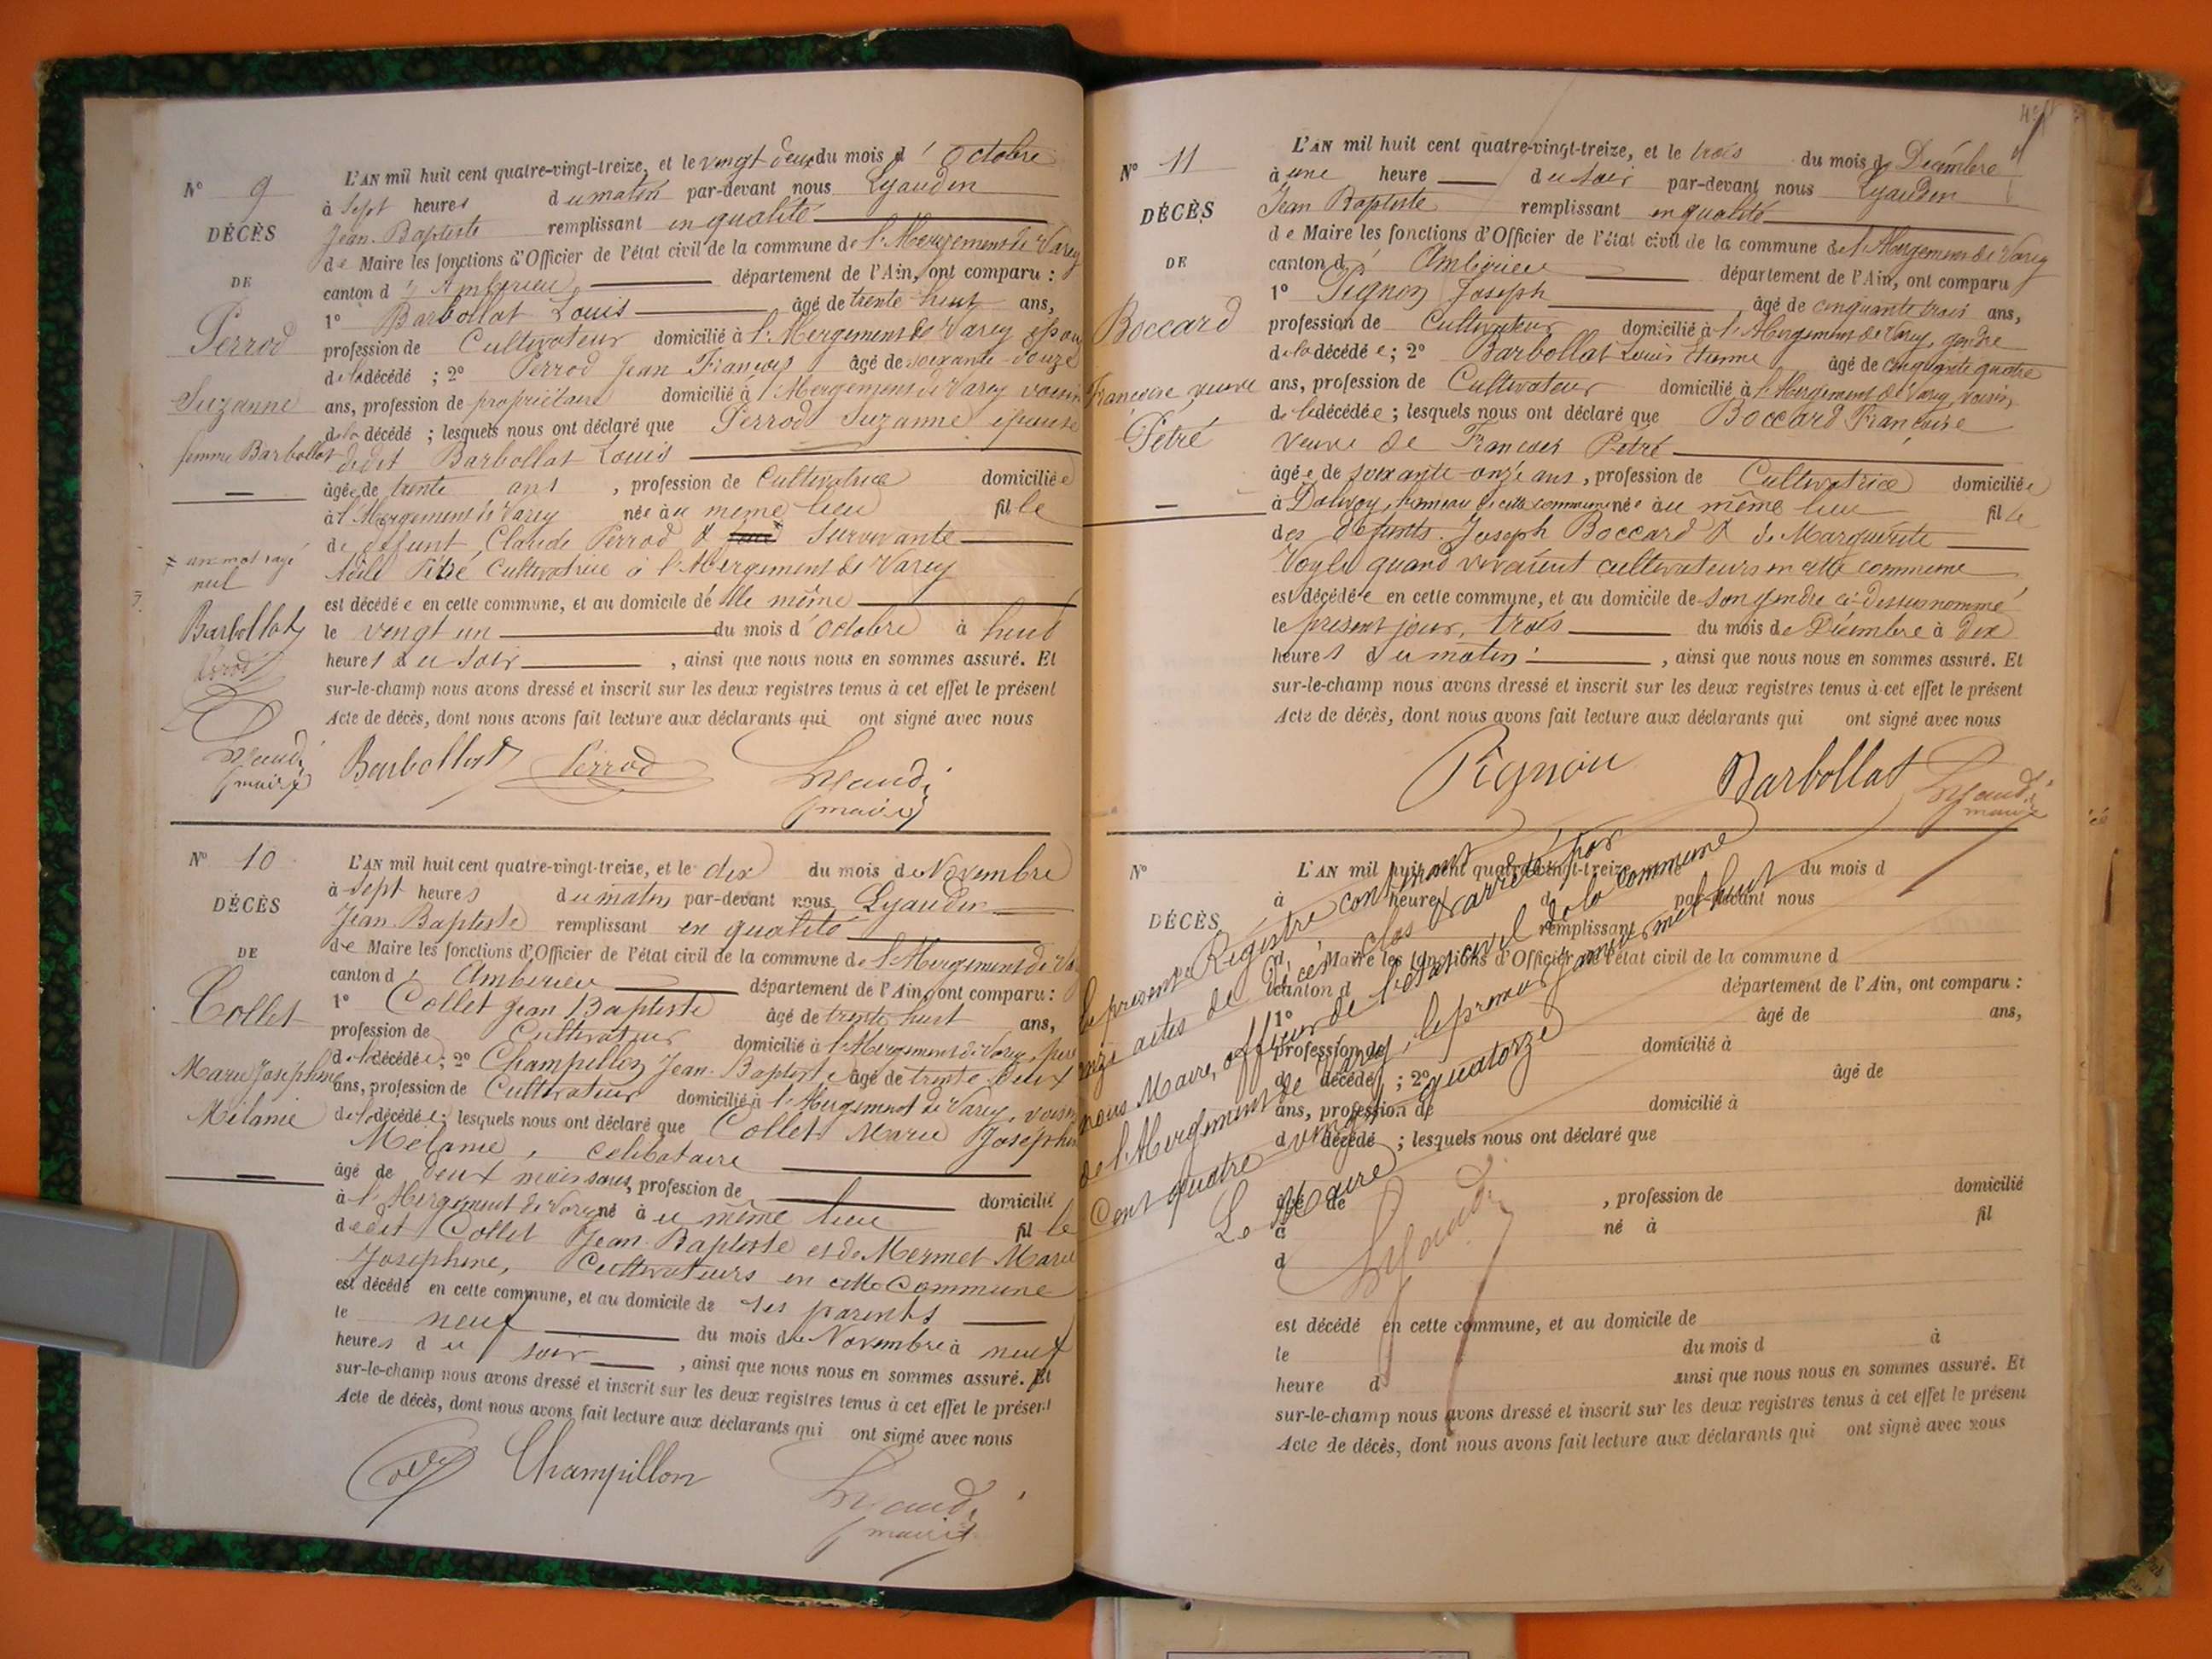 N° 9
DÉCÈS
DE
Perrod
Suzanne
femme Barbollat
un mot rayé
nul
Barbollat
Perrod
Lyaudin
maire
L'AN mil huit cent quatre-vingt-treize, et le vingt deux du mois d'Octobre
à Sept heures du matin par-devant nous Lyaudin
Jean-Baptiste remplissant en qualité
de Maire les fonctions d'Officier de l'état civil de la commune de l'Abergement de Varey
canton d'Ambérieu département de l'Ain, ont comparu :
1° Barbollat Louis âgé de trente huit ans,
profession de Cultivateur domicilié à l'Abergement de Varey époux
de la décédé ; 2° Perrod Jean François âgé de soixante-douze
ans, profession de propriétaire domicilié à l'Abergement de Varey voisin
de la décédé ; lesquels nous ont déclaré que Perrod Suzanne épouse
dedit Barbollat Louis
âgée de trente ans , profession de Cultivatrice domiciliée
à l'Abergement de Varey née au même lieu fille
de défunt Claude Perrod & survivante
Adèle Pétré Cultivatrice à l'Abergement de Varey
est décédée en cette commune, et au domicile de elle même
le vingt un du mois d'Octobre à huit
heures du soir , ainsi que nous nous en sommes assuré. Et
sur-le-champ nous avons dressé et inscrit sur les deux registres tenus à cet effet le présent
Acte de décès, dont nous avons fait lecture aux déclarants qui ont signé avec nous
Barbollat Perrod Lyaudin
maire
N° 10
DÉCÈS
DE
Collet
Marie Josephine
Mélanie
L'AN mil huit cent quatre-vingt-treize, et le dix du mois de Novembre
à Sept heures du matin par-devant nous Lyaudin
Jean-Baptiste remplissant en qualité
de Maire les fonctions d'Officier de l'état civil de la commune de l'Abergement de Va
canton d'Ambérieu département de l'Ain, ont comparu :
1° Collet Jean Baptiste âgé de trente huit ans,
profession de Cultivateur domicilié à l'Abergement de Varey, père
de la décédée ; 2° Champillon Jean-Baptiste âgé de trente deux
ans, profession de Cultivateur domicilié à l'Abergement de Varey, voisin
de la décédée ; lesquels nous ont déclaré que Collet Marie Joséphine
Mélanie, célibataire
âgé de deux mois sans, profession de domicilié
à l'Abergement de Varey né à u même lieu fille
dedit Collet Jean-Baptiste et de Mermet Marie
Josephine, Cultivateurs en cette Commune
est décédé en cette commune, et au domicile de ses parents
le neuf du mois de Novembre à neuf
heures du soir , ainsi que nous nous en sommes assuré. Et
sur-le-champ nous avons dressé et inscrit sur les deux registres tenus à cet effet le présent
Acte de décès, dont nous avons fait lecture aux déclarants qui ont signé avec nous
Champillon Lyaudin
maire
N° 11
DÉCÈS
DE
Boccard
Françoise, veuve
Pétré
L'AN mil huit cent quatre-vingt-treize, et le trois du mois de Décembre
à une heure du soir par-devant nous Lyaudin
Jean Baptiste remplissant en qualité
de Maire les fonctions d'Officier de l'état civil de la commune de l'Abergement de Varey
canton d'Ambérieu département de l'Ain, ont comparu
1° Pignon Joseph âgé de cinquante trois ans,
profession de Cultivateur domicilié à l'Abergement de Varey, gendre
de la décédée ; 2° Barbollat Louis Etienne âgé de cinquante quatre
ans, profession de Cultivateur domicilié à l'Abergement de Varey, voisin
de la décédée ; lesquels nous ont déclaré que Boccard Françoise
veuve de François Pétré
âgée de soixante-onze ans, profession de Cultivatrice domiciliée
à Dalivoy, hameau de cette commune née au même lieu fille
des défunts Joseph Boccard & de Marguerite
quand vivaient cultivateurs en cette commune
est décédée en cette commune, et au domicile de son gendre ci-dessus nommé
le présent jour, trois du mois de Décembre à dix
heures du matin , ainsi que nous nous en sommes assuré. Et
sur-le-champ nous avons dressé et inscrit sur les deux registres tenus à cet effet le présent
Acte de décès, dont nous avons fait lecture aux déclarants qui ont signé avec nous
Pignon Barbollat Lyaudin
maire
N°
DÉCÈS
L'AN mil huit cent quatre-vingt-treize, du mois d
à heure d par-devant nous
remplissant
d Maire les fonctions d'Officier de l'état civil de la commune d
canton d département de l'Ain, ont comparu :
1° âgé de ans,
profession de domicilié à
d décédé ; 2° âgé de
ans, profession de domicilié à
d décédé ; lesquels nous ont déclaré que
âgé de , profession de domicilié
à né à fil
d
est décédé en cette commune, et au domicile de
le du mois d à
heure d ainsi que nous nous en sommes assuré. Et
sur-le-champ nous avons dressé et inscrit sur les deux registres tenus à cet effet le présent
Acte de décès, dont nous avons fait lecture aux déclarants qui ont signé avec nous
Le présent Registre contenant
onze actes de Décès, clos & arrêté par
nous Maire, officier de l'état civil de la commune
de l'Abergement de Varey, le premier janvier mil huit
Cent quatre-vingt-quatorze
Le Maire
Lyaudin